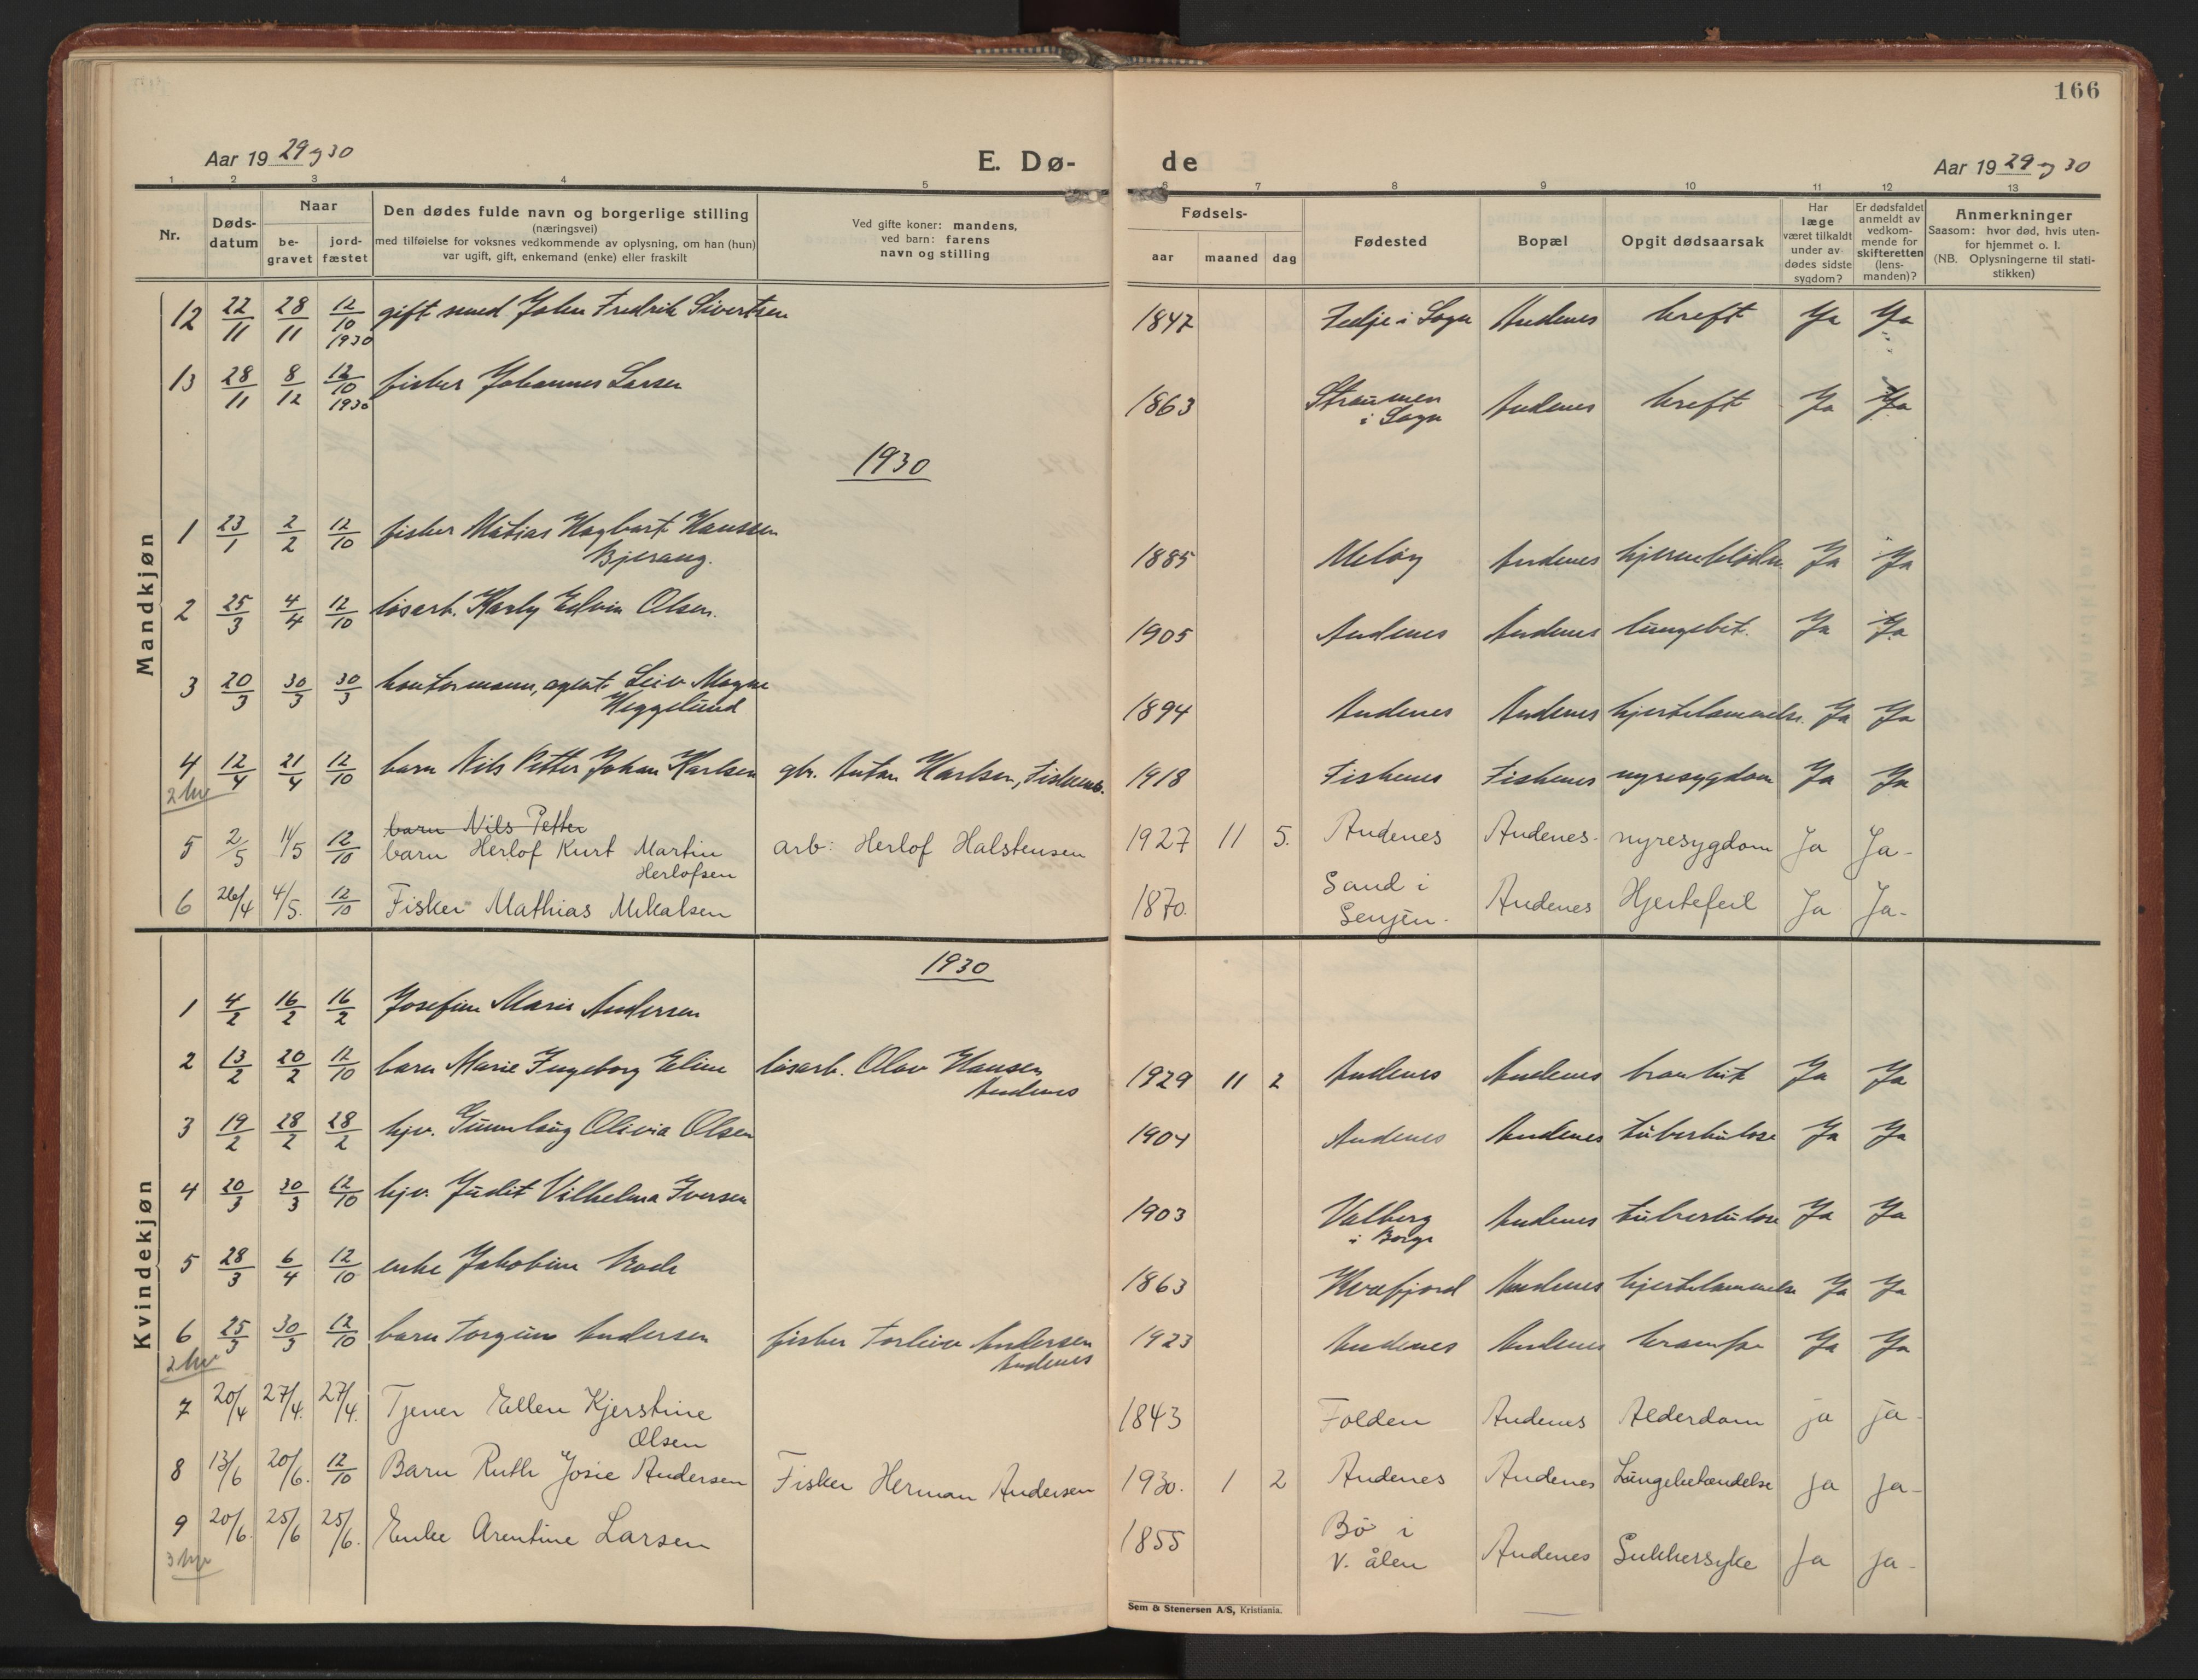 166
Aar 19 29 og 30 E. Dø- de Aar 19 29 og 30
1 2 3 4 5 6 7 8 9 10 11 12 13
Nr.
Døds-
datum
Naar
be-
gravet
jord-
fæstet
Den dødes fulde navn og borgerlige stilling
(næringsvei)
med tilføielse for voksnes vedkommende av oplysning, om han (hun)
var ugift, gift, enkemand (enke) eller fraskilt
Ved gifte koner: mandens,
ved barn: farens
navn og stilling
Fødsels-
aar maaned dag
Fødested
Bopæl
Opgit dødsaarsak
Har
læge
været tilkaldt
under av-
dødes sidste
sygdom?
Er dødsfaldet
anmeldt av
vedkom-
mende for
skifteretten
(lens-
manden)?
Anmerkninger
Saasom: hvor død, hvis uten-
for hjemmet o. l.
(NB. Oplysningerne til stati-
stikken)
Mandkjøn
12 22/11 28/11 12/10 1930 gift smed Johan Fredrik Sivertsen 1847 Fedje i Sogn Andenes kreft Ja Ja
13 28/11 8/12 12/10 1930 fisker Johannes Larsen 1863 Straumen i Sogn Andenes kreft Ja Ja
1930
1 23/1 2/2 12/10 fisker Matias Hagbart Hanssen
Bjerang. 1885 Meløy Andenes hjerneblødn. Ja Ja
2 25/3 4/4 12/10 løsarb. Karly Edvin Olsen. 1905 Andenes Andenes lungebet. Ja Ja
3 20/3 30/3 30/3 kontormann, agent Leiv Magne
Heggelund 1894 Andenes Andenes hjertelammelse. Ja Ja
4 12/4 21/4 12/10 barn Nils Petter Johan Karlsen gbr. Anton Karlsen, Fiskenes. 1918 Fiskenes Fiskenes nyresygdom Ja Ja
barn Nils Petter
5 2/5 11/5 12/10 barn Herlof Kurt Martin
Herlofsen arb: Herlof Halstensen 1927 11 5. Andenes Andenes. nyresygdom Ja Ja-
6 26/4 4/5. 12/10 Fisker Mathias Mikalsen 1870. Sand i
Senjen. Andenes Hjertefeil Ja Ja-
Kvindekjøn
1930
1 4/2 16/2 16/2 Josefine Marie Andersen
2 13/2 20/2 12/10 barn Marie Ingeborg Eline løsarb. Olav Hansen
Andenes 1929 11 2 Andenes Andenes bronkit Ja Ja
3 19/2 28/2 28/2 hjv. Gunnlaug Olivia Olsen 1904 Andenes Andenes tuberkulose Ja Ja
4 20/3 30/3 12/10 hjv. Judit Vilhelma Iversen 1903 Valberg
i Borge Andenes tuberkulose Ja Ja
5 28/3 6/4 12/10 enke Jakobine 1863 Kvæfjord Andenes hjertelammelse Ja Ja
6 25/3 30/3 12/10 barn Torgunn Andersen fisker Torleiv Andersen
Andenes 1923 Andenes Andenes krampe Ja Ja
7 20/4 27/4. 27/4. Tjener Ellen Kjerstine
Olsen 1843 Folden Andenes Alderdom ja ja-
8 13/6 20/6. 12/10 Barn Ruth Josie Andersen Fisker Herman Andersen 1930. 1 2 Andenes Andenes Lungebetændelse Ja Ja-
9 20/6. 25/6 25/6. Enke Arentine Larsen 1855 Bø i
V. ålen Andenes Sukkersyke Ja Ja-
Sem & Stenersen A/S, Kristiania.